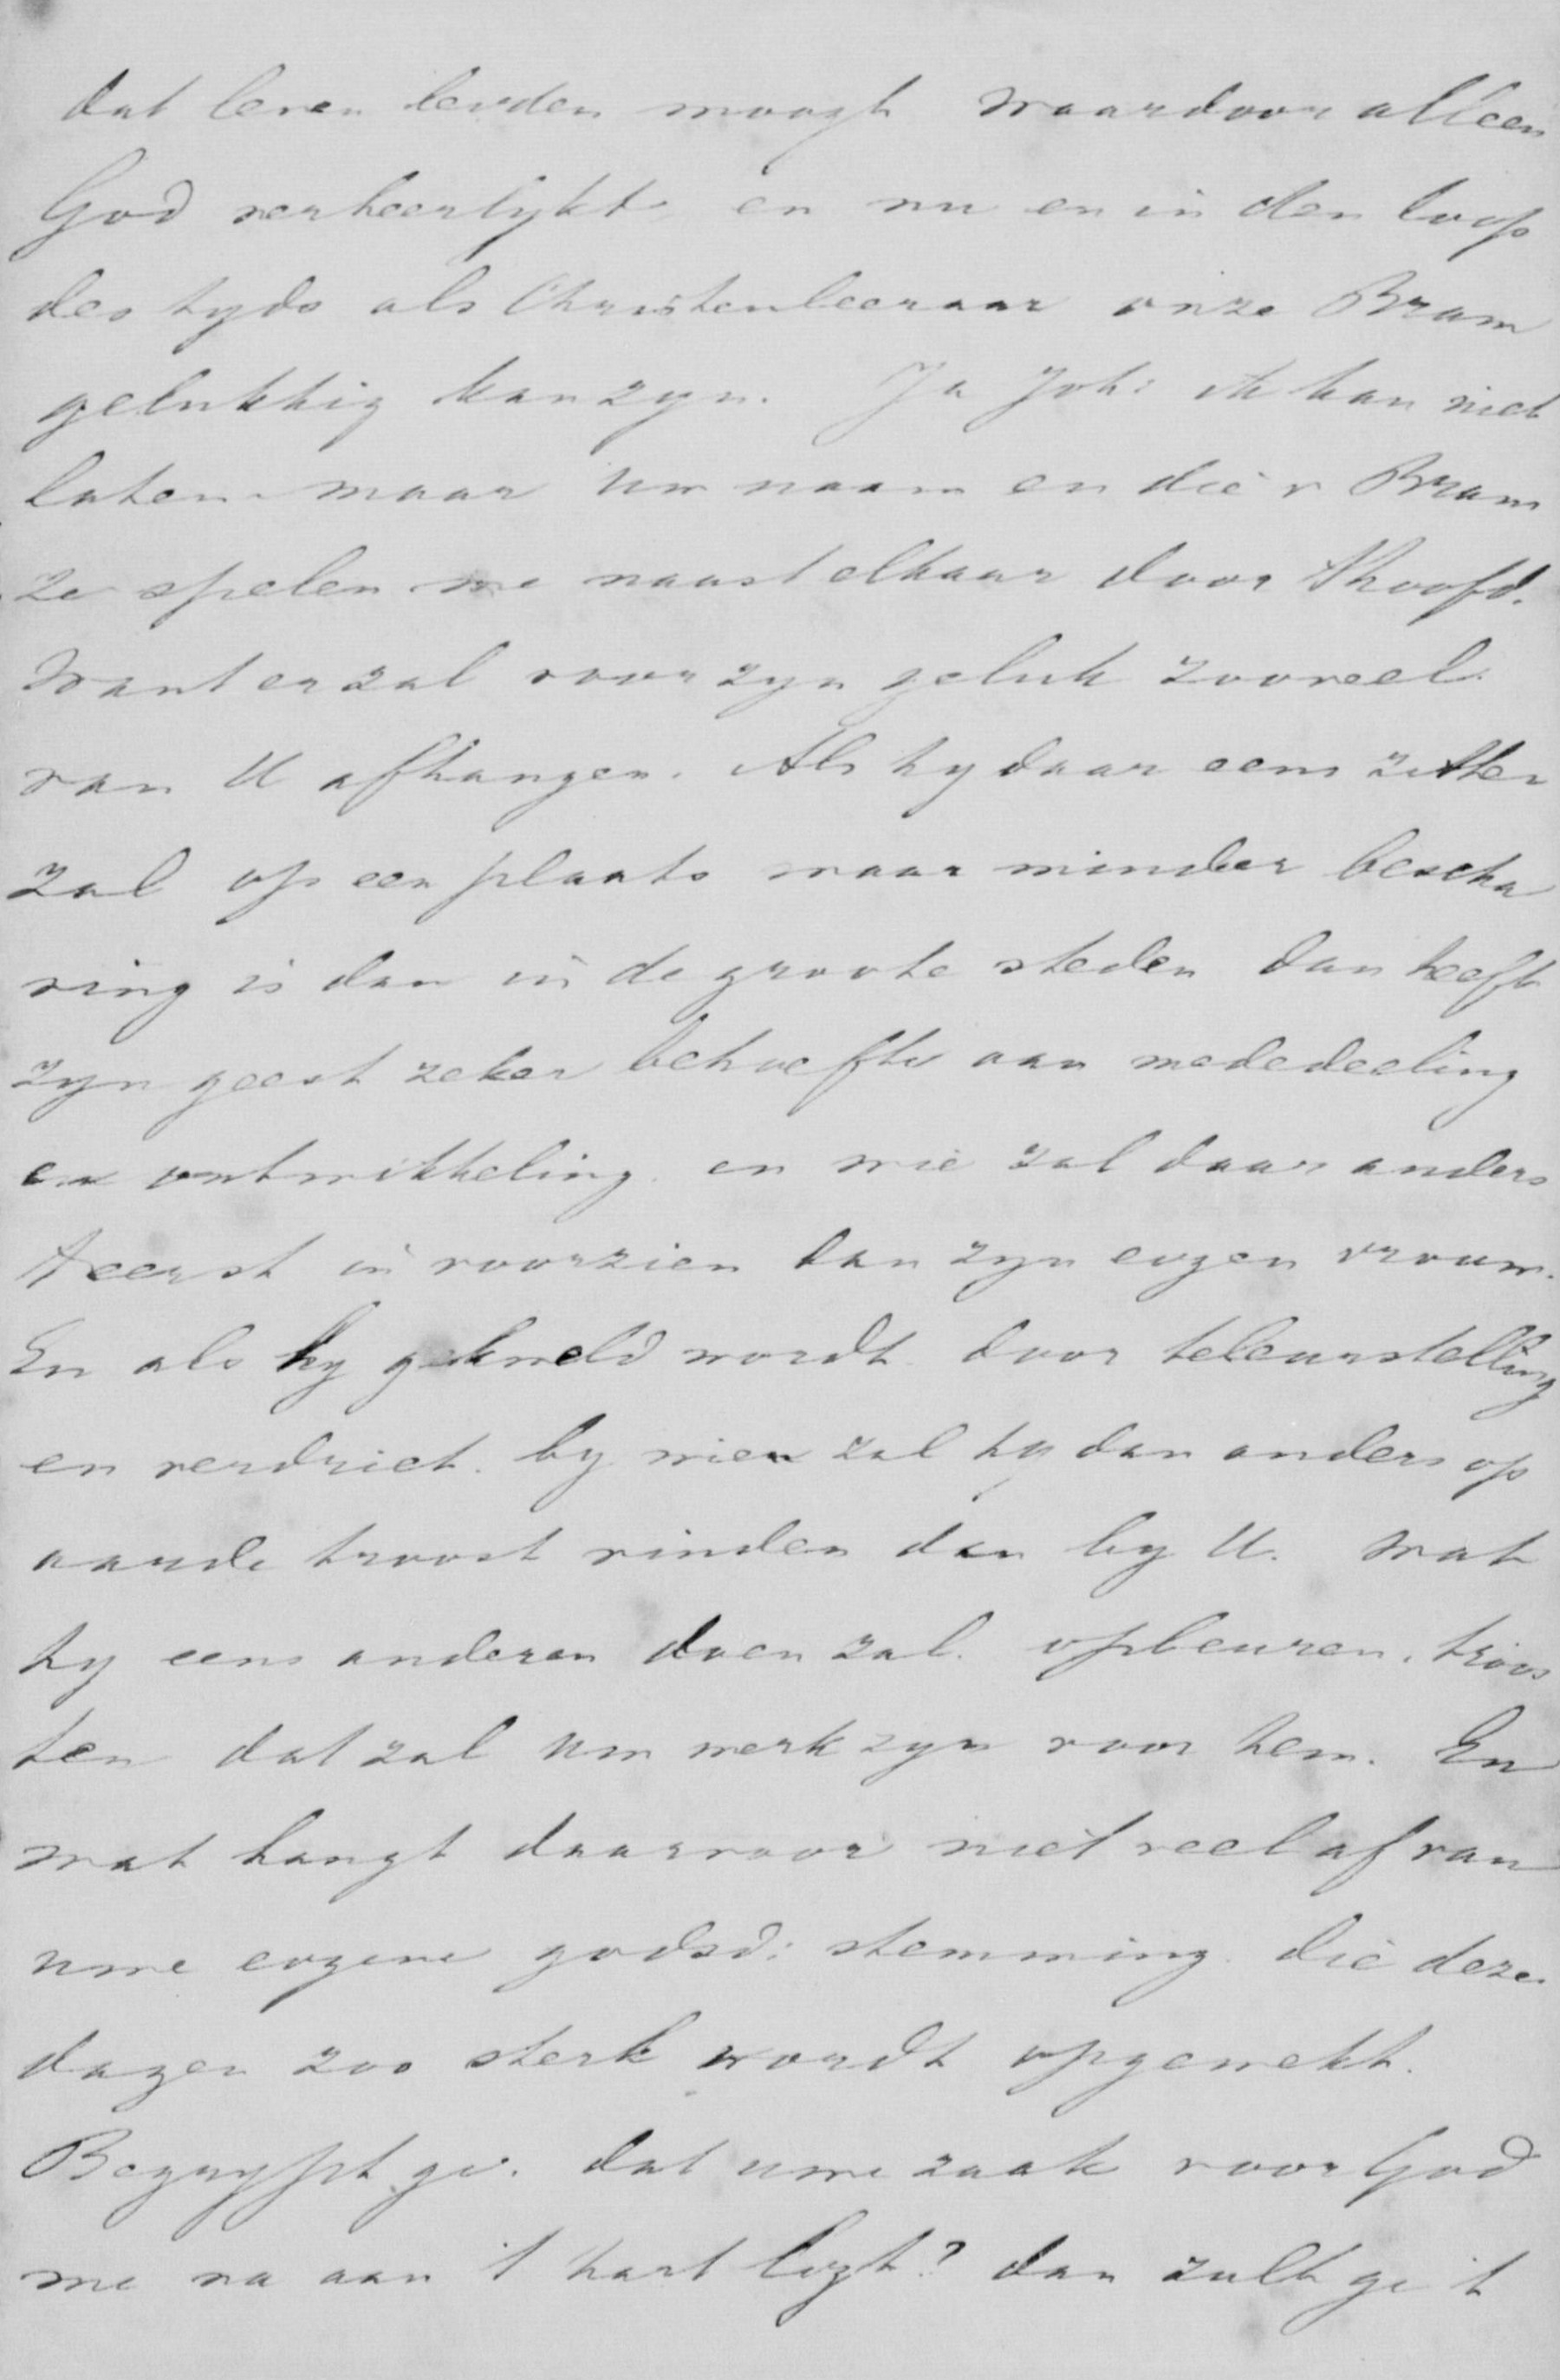 dat leven leiden moogt waardoor alleen
God verheerlykt en nu en in den loop
des tyds als Christenleeraar onze Bram
gelukkig kan zyn. Ja Joh: ik kan niet
laten maar uw naam en die v Bram
ze spelen me naast elkaar door 't hoofd.
Want er zal voor zyn geluk zooveel
van U afhangen. Als hy daar eens zitten
zal op een plaats waar minder bescha
ving is dan in de groote steden dan heeft
zyn geest zeker behoefte aan mededeeling
en ontwikkeling en wie zal daar anders
't eerst in voorzien dan zyn eigen vrouw.
En als hy gekweld wordt door teleurstelling
en verdriet. by wien zal hy dan anders op
aarde troost vinden dan by U. Wat
hy eens anderen doen zal. opbeuren, troos
ten dat zal uw werk zyn voor hem. En
wat hangt daarvoor niet veel af van
uwe eigene godsd: stemming. die deze
dagen zoo sterk wordt opgewekt.
Begrypt ge. dat uwe zaak voor God
me na aan 't hart ligt? dan zult ge 't